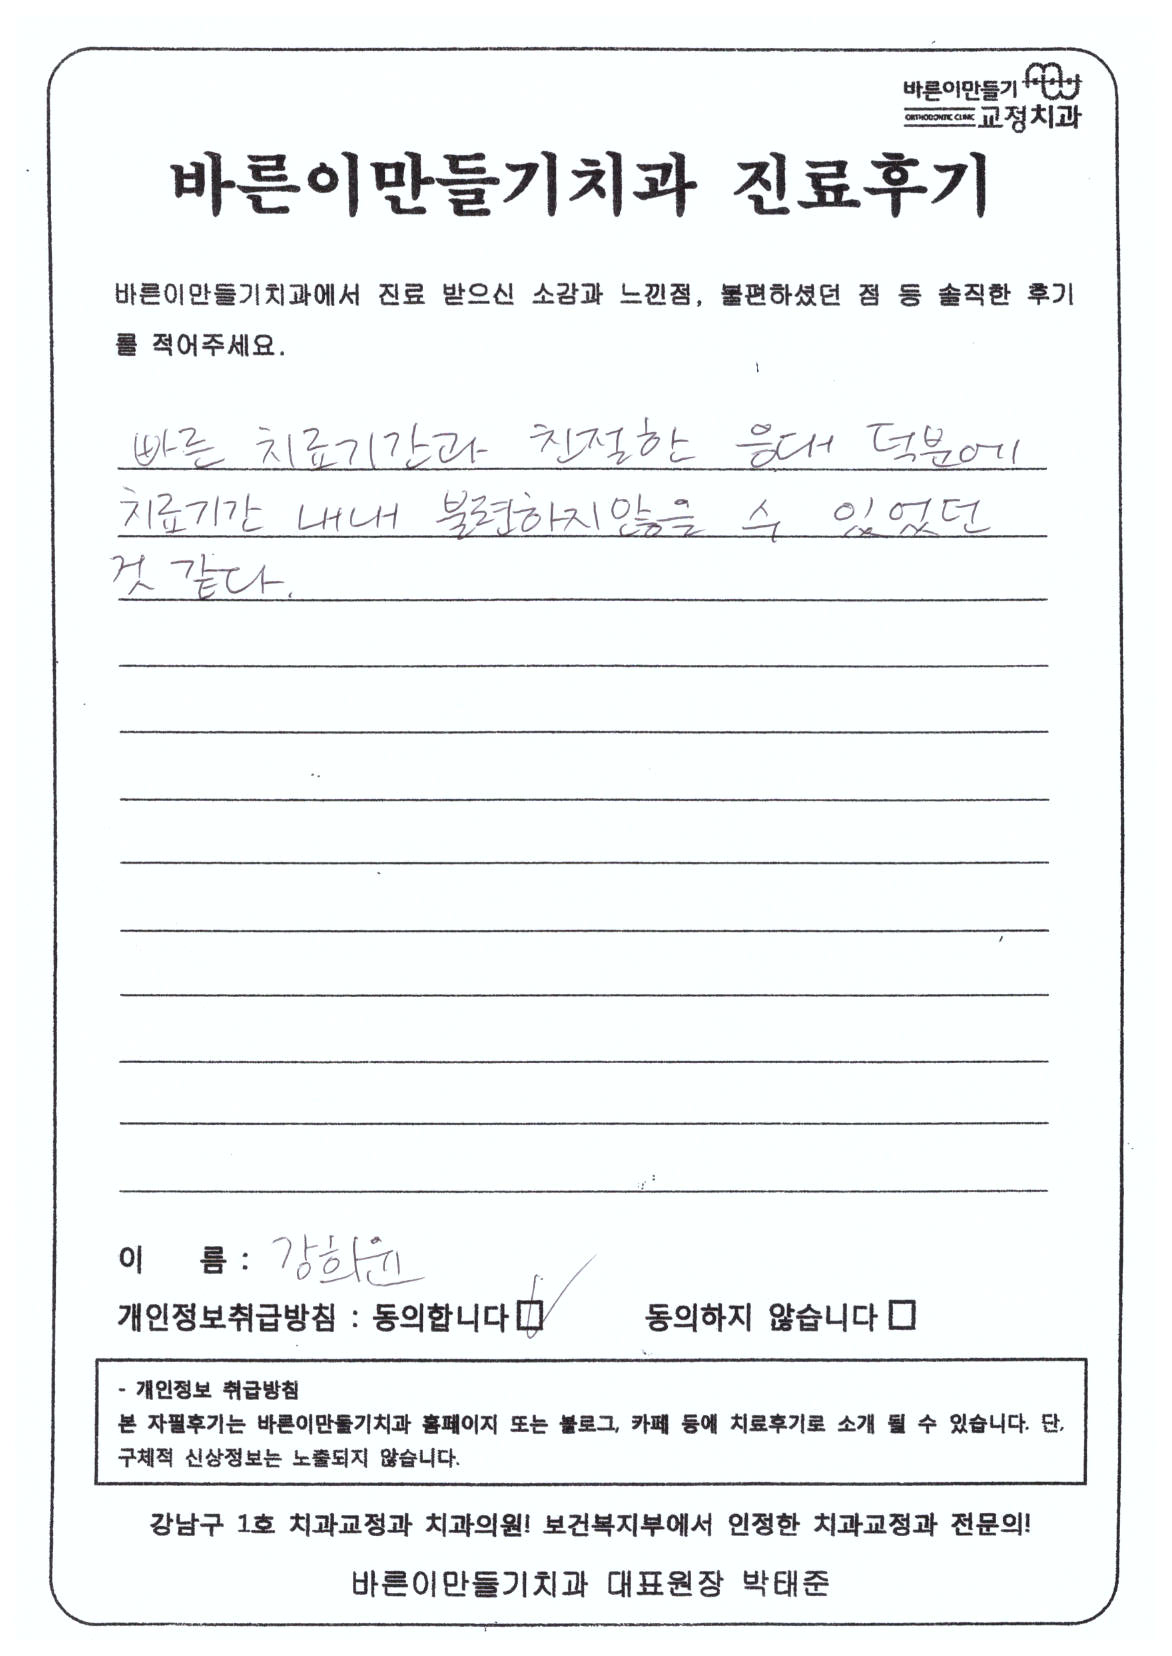 바른이만들기
ORTHODONTIC CLINIC 교정치과
바른이만들기치과 진료후기
바른이만들기치과에서 진료 받으신 소감과 느낀점, 불편하셨던 점 등 솔직한 후기
를 적어주세요.
빠른 치료기간과 친절한 응대 덕분에
치료기간 내내 불편하지않을 수 있었던
것 같다.
이 름 : 강희윤
개인정보취급방침 : 동의합니다 동의하지 않습니다
- 개인정보 취급방침
본 자필후기는 바른이만들기치과 홈페이지 또는 블로그, 카페 등에 치료후기로 소개 될 수 있습니다. 단,
구체적 신상정보는 노출되지 않습니다.
강남구 1호 치과교정과 치과의원! 보건복지부에서 인정한 치과교정과 전문의!
바른이만들기치과 대표원장 박태준